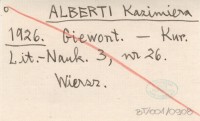 ALBERTI Kazimiera
1926. Giewont. — Kur.
Lit.-Nauk. 3, nr 26.
Wiersz.